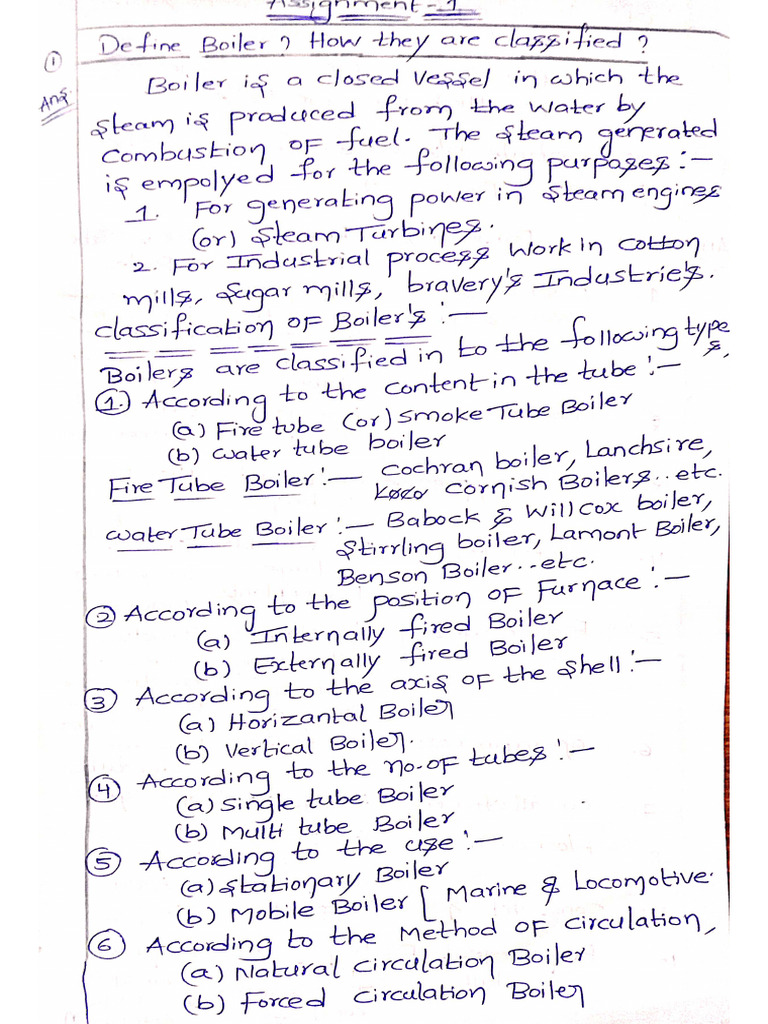 Assignment-1
① Define Boiler? How they are classified?
Ans Boiler is a closed vessel in which the
steam is produced from the water by
combustion of fuel. The steam generated
is empolyed for the following purpases:-
1. For generating power in steam engines
(or) steam Turbines.
2. For Industrial process work in cotton
mills, sugar mills, bravery's Industrie's.
classification of Boiler's:-
Boilers are classified in to the following types,
①.) According to the content in the tube:-
(a) Fire tube (or) smoke Tube Boiler
(b) water tube boiler
Fire Tube Boiler:- Cochran boiler, Lanchsire,
Cornish Boilers..etc.
water Tube Boiler:- Babock & Willcox boiler,
Stirrling boiler, Lamont Boiler,
Benson Boiler..etc.
② According to the position of Furnace:-
(a) Internally fired Boiler
(b) Externally fired Boiler
③ According to the axis of the shell:-
(a) Horizantal Boiler
(b) Vertical Boiler.
④ According to the no.of tubes:-
(a) Single tube Boiler
(b) Multi tube Boiler
⑤ According to the use:-
(a) Stationary Boiler
(b) Mobile Boiler [ Marine & Locomotive.
⑥ According to the Method of circulation,
(a) Natural circulation Boiler
(b) Forced circulation Boiler